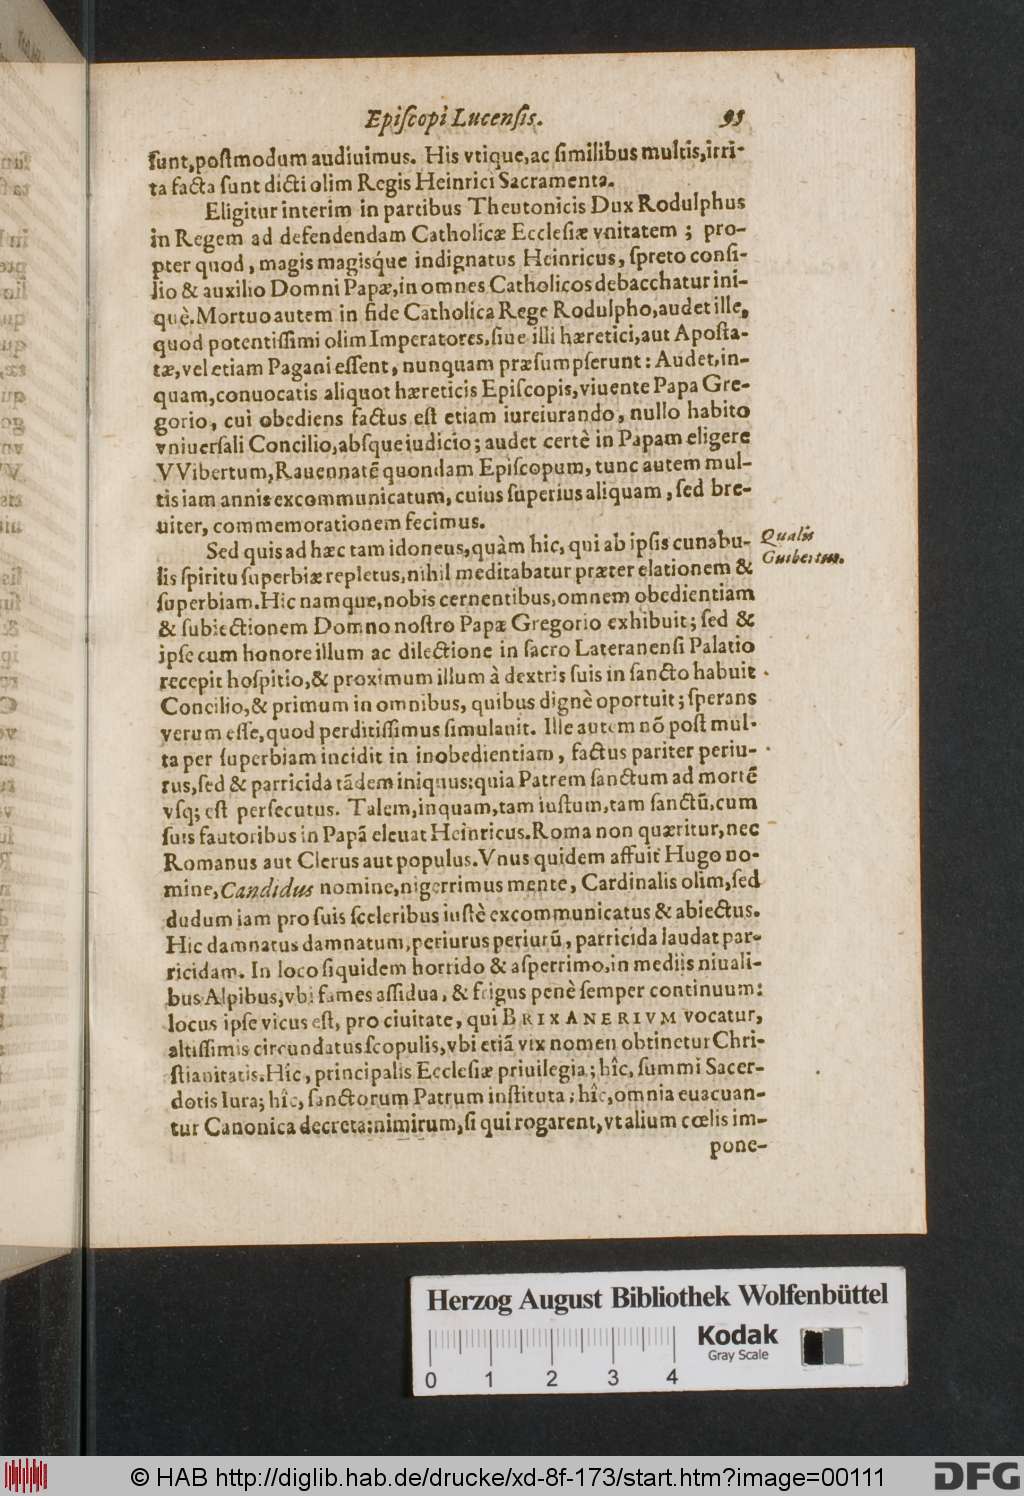 Epiſcopi Lucenſis. 95
ſunt, poſtmodum audiuimus. His vtique, ac ſimilibus multis, irri-
ta facta ſunt dicti olim Regis Heinrici Sacramenta.
Eligitur interim in partibus Theutonicis Dux Rodulphus
in Regem ad defendendam Catholicæ Eccleſiæ vnitatem ; pro-
pter quod, magis magisq́ue indignatus Heinricus, ſpreto conſi-
lio & auxilio Domni Papæ, in omnes Catholicos debacchatur ini-
què. Mortuo autem in fide Catholica Rege Rodulpho, audet ille,
quod potentiſſimi olim Imperatores, ſiue illi hæretici, aut Apoſta-
tæ, vel etiam Pagani eſſent, nunquam præſumpſerunt: Audet, in-
quam, conuocatis aliquot hæreticis Epiſcopis, viuente Papa Gre-
gorio, cui obediens factus eſt etiam iureiurando, nullo habito
vniuerſali Concilio, abſque iudicio; audet certè in Papam eligere
VVibertum, Rauennatẽ quondam Epiſcopum, tunc autem mul-
tis iam annis excommunicatum, cuius ſuperius aliquam, ſed bre-
uiter, commemorationem fecimus.
Sed quis ad hæc tam idoneus, quàm hic, qui ab ipſis cunabu-
lis ſpiritu ſuperbiæ repletus, nihil meditabatur præter elationem &
ſuperbiam. Hic namque, nobis cernentibus, omnem obedientiam
& ſubiectionem Domno noſtro Papæ Gregorio exhibuit; ſed &
ipſe cum honore illum ac dilectione in ſacro Lateranenſi Palatio
recepit hoſpitio, & proximum illum à dextris ſuis in ſancto habuit
Concilio, & primum in omnibus, quibus dignè oportuit; ſperans
verum eſſe, quod perditiſſimus ſimulauit. Ille autem nõ poſt mul-
ta per ſuperbiam incidit in inobedientiam, factus pariter periu-
rus, ſed & parricida tãdem iniquus: quia Patrem ſanctum ad mortẽ
vſq; eſt perſecutus. Talem, inquam, tam iuſtum, tam ſanctũ, cum
ſuis fautoribus in Papã eleuat Heinricus. Roma non quæritur, nec
Romanus aut Clerus aut populus. Vnus quidem affuit Hugo no-
mine, Candidus nomine, nigerrimus mente, Cardinalis olim, ſed
dudum iam pro ſuis ſceleribus iuſtè excommunicatus & abiectus.
Hic damnatus damnatum, periurus periurũ, parricida laudat par-
ricidam. In loco ſiquidem horrido & aſperrimo, in mediis niuali-
bus Alpibus, vbi fames aſſidua, & frigus penè ſemper continuum:
locus ipſe vicus eſt, pro ciuitate, qui BRIXANERIVM vocatur,
altiſſimis circundatus ſcopulis, vbi etiã vix nomen obtinetur Chri-
ſtianitatis. Hîc, principalis Eccleſiæ priuilegia; hîc, ſummi Sacer-
dotis Iura; hîc, ſanctorum Patrum inſtituta; hîc, omnia euacuan-
tur Canonica decreta: nimirum, ſi qui rogarent, vt alium cœlis im-
pone-
Qualis
Guibertus.
Herzog August Bibliothek Wolfenbüttel
Kodak
Gray Scale
0 1 2 3 4
© HAB http://diglib.hab.de/drucke/xd-8f-173/start.htm?image=00111
DFG